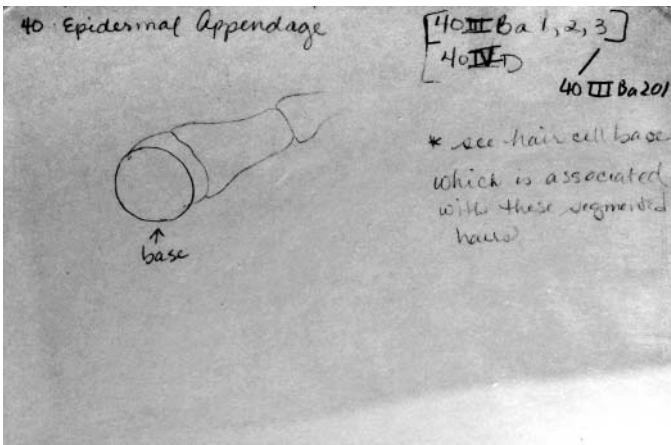 40 Epidermal Appendage
[40 III Ba 1, 2, 3]
40 IV D
40 III Ba 201
* see hair cell base
which is associated
with these segmented
hairs
↑
base